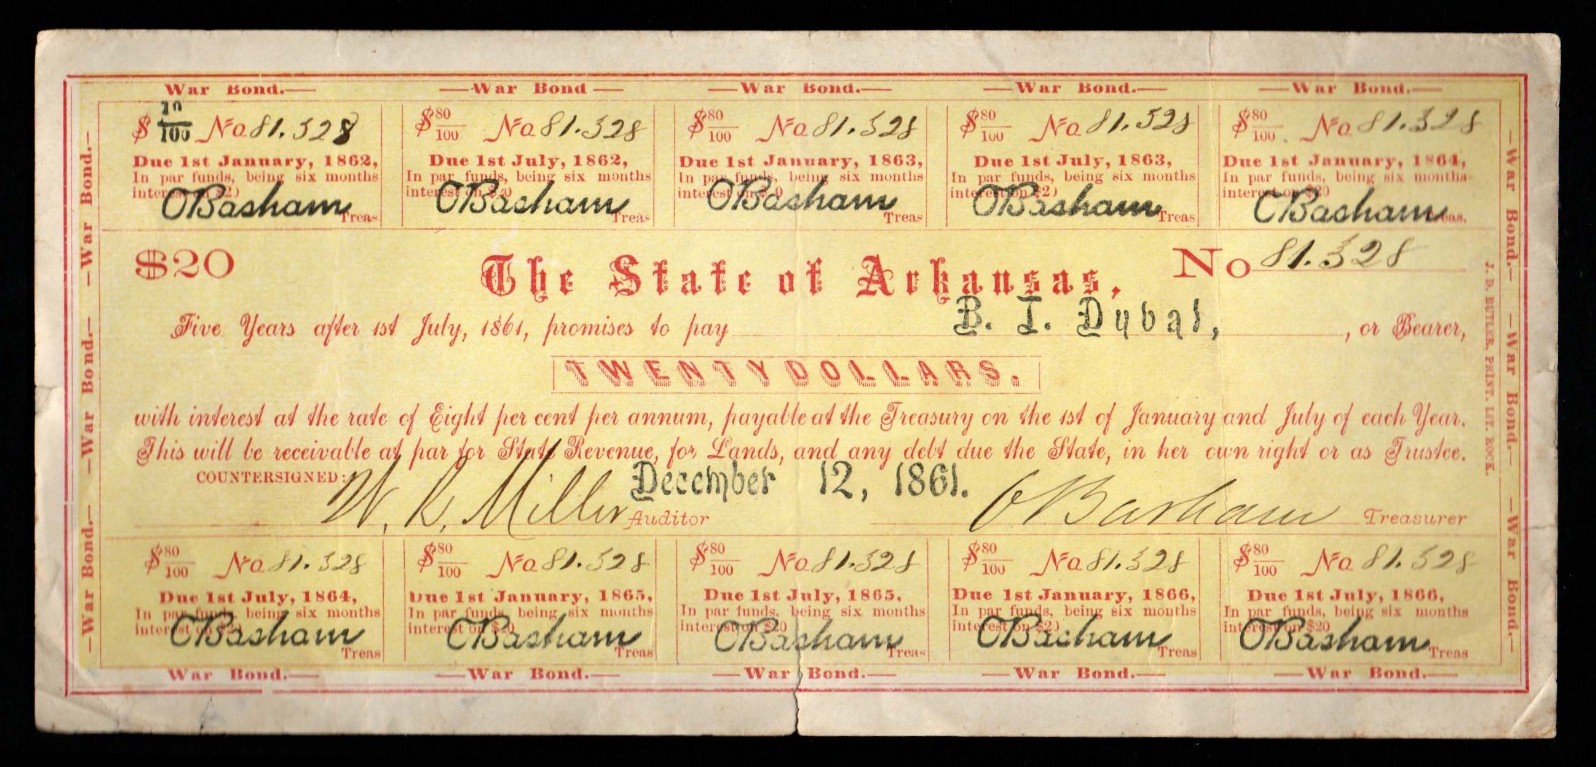 War Bond.— —War Bond — —War Bond.— —War Bond.— War Bond.—
$ 10/100 No 81.328
Due 1st January, 1862,
In par funds, being six months
interest on $20
OBasham Treas
$ 80/100 No 81.328
Due 1st July, 1862,
In par funds, being six months
interest on $20
OBasham Treas
$ 80/100 No 81.328
Due 1st January, 1863,
In par funds, being six months
interest on
OBasham
$ 80/100 No 81.328
Due 1st July, 1863,
In par funds, being six months
interest on $20
OBasham Treas
$ 80/100 No 81.328
Due 1st January, 1864,
In par funds, being six months
interest on $20
OBasham Treas.
$20 The State of Arkansas, No 81.328
Five Years after 1st July, 1861, promises to pay B. T. Duval, , or Bearer,
TWENTY DOLLARS.
with interest at the rate of Eight per cent per annum, payable at the Treasury on the 1st of January and July of each Year.
This will be receivable at par for State Revenue, for Lands, and any debt due the State, in her own right or as Trustee.
COUNTERSIGNED: December 12, 1861.
W. R. Miller Auditor OBasham Treasurer
$ 80/100 No 81.328
Due 1st July, 1864,
In par funds, being six months
interest on $20
OBasham Treas
$ 80/100 No 81.328
Due 1st January, 1865,
In par funds, being six months
interest on $20
OBasham Treas
$ 80/100 No 81.328
Due 1st July, 1865,
In par funds, being six months
interest on $20
OBasham Treas
$ 80/100 No 81.328
Due 1st January, 1866,
In par funds, being six months
interest on $20
OBasham Treas
$ 80/100 No 81.328
Due 1st July, 1866,
In par funds, being six months
interest on $20
OBasham Treas
War Bond.— —War Bond.— —War Bond.— —War Bond.— War Bond.—
—War Bond.— —War Bond.— —War Bond.—
—War Bond.— —War Bond.— —War Bond.—
J. D. BUTLER, PRINT. LIT. ROCK.